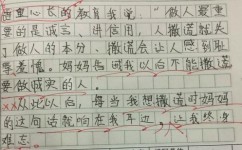 语重心长的教育我说："做人最重
要的是诚言、讲信用，人撒谎就失
了做人的本分、撒谎会让人感到耻
辱羞愧。妈妈告诫我以后不能撒谎
要做诚实的人。
从此以后，每当我想撒谎时妈妈
的这句话就响在我耳边，让我终身
难忘。